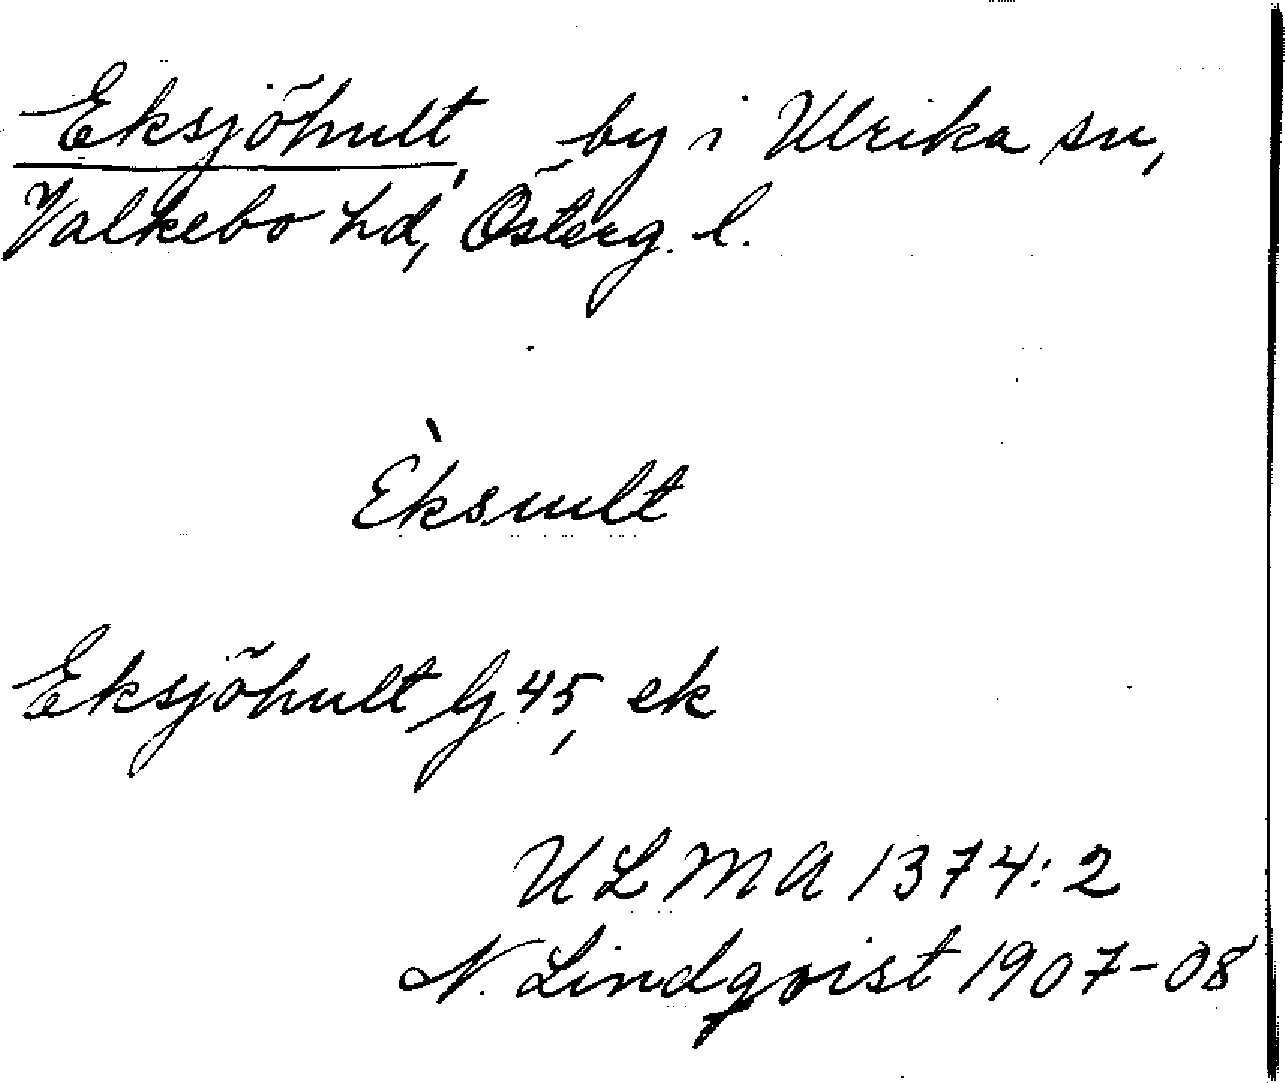 Eksjöhult, by i Ulrika sn,
Valkebo hd, Österg. l.
Èksult
Eksjöhult lj 45, ek
ULMA 1374:2
N. Lindqvist 1907-08